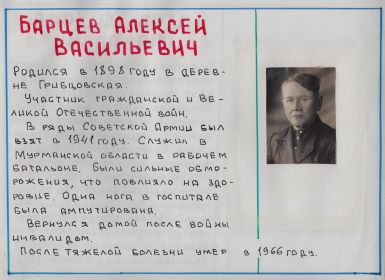 БАРЦЕВ АЛЕКСЕЙ
ВАСИЛЬЕВИЧ
РОДИЛСЯ В 1898 ГОДУ В ДЕРЕВ-
НЕ ГРИБЦОВСКАЯ.
УЧАСТНИК ГРАЖДАНСКОЙ И ВЕ-
ЛИКОЙ ОТЕЧЕСТВЕННОЙ ВОЙН.
В РЯДЫ СОВЕТСКОЙ АРМИИ БЫЛ
ВЗЯТ В 1941 ГОДУ. СЛУЖИЛ В
МУРМАНСКОЙ ОБЛАСТИ В РАБОЧЕМ
БАТАЛЬОНЕ. БЫЛИ СИЛЬНЫЕ ОБМО-
РОЖЕНИЯ, ЧТО ПОВЛИЯЛО НА ЗДО-
РОВИЕ. ОДНА НОГА В ГОСПИТАЛЕ
БЫЛА АМПУТИРОВАНА.
ВЕРНУЛСЯ ДОМОЙ ПОСЛЕ ВОЙНЫ
ИНВАЛИДОМ.
ПОСЛЕ ТЯЖЕЛОЙ БОЛЕЗНИ УМЕР В 1966 ГОДУ.